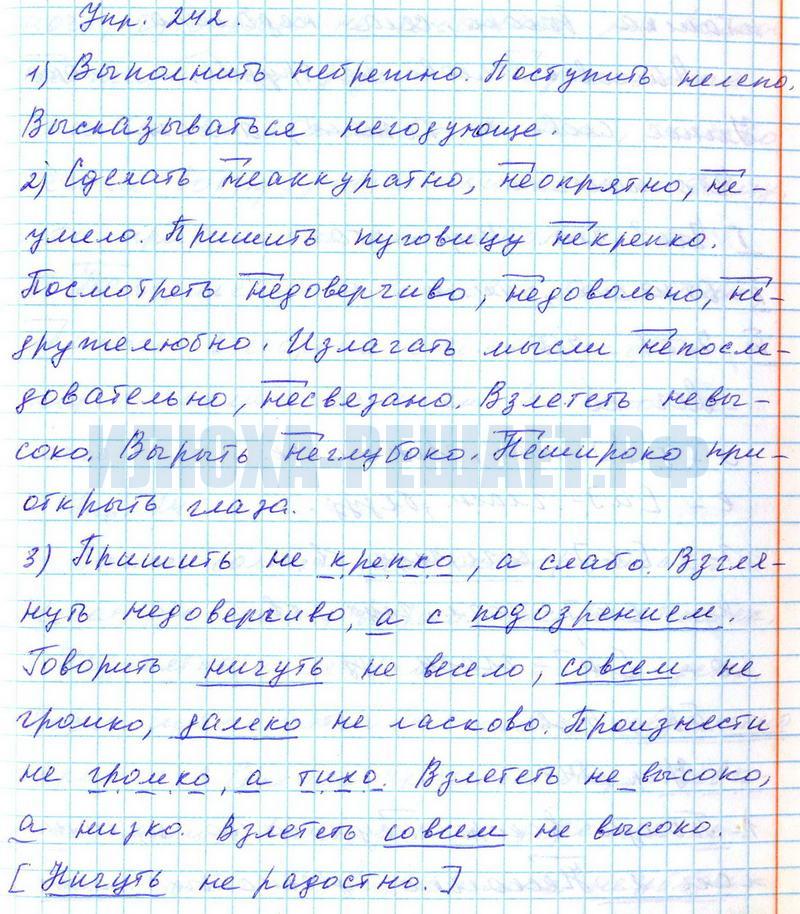 Упр. 242.
1) Выполнить небрежно. Поступить нелепо.
Высказываться негодующе.
2) Сделать неаккуратно, неопрятно, не-
умело. Пришить пуговицу некрепко.
Посмотреть недоверчиво, недовольно, не-
дружелюбно. Излагать мысли непосле-
довательно, несвязано. Взлететь невы-
соко. Вырыть неглубоко. Нешироко при-
открыть глаза.
ИЛЮХА-РЕШАЕТ.РФ
3) Пришить не крепко, а слабо. Взгля-
нуть недоверчиво, а с подозрением.
Говорить ничуть не весело, совсем не
громко, далеко не ласково. Произнести
не громко, а тихо. Взлететь не высоко,
а низко. Взлететь совсем не высоко.
[Ничуть не радостно.]